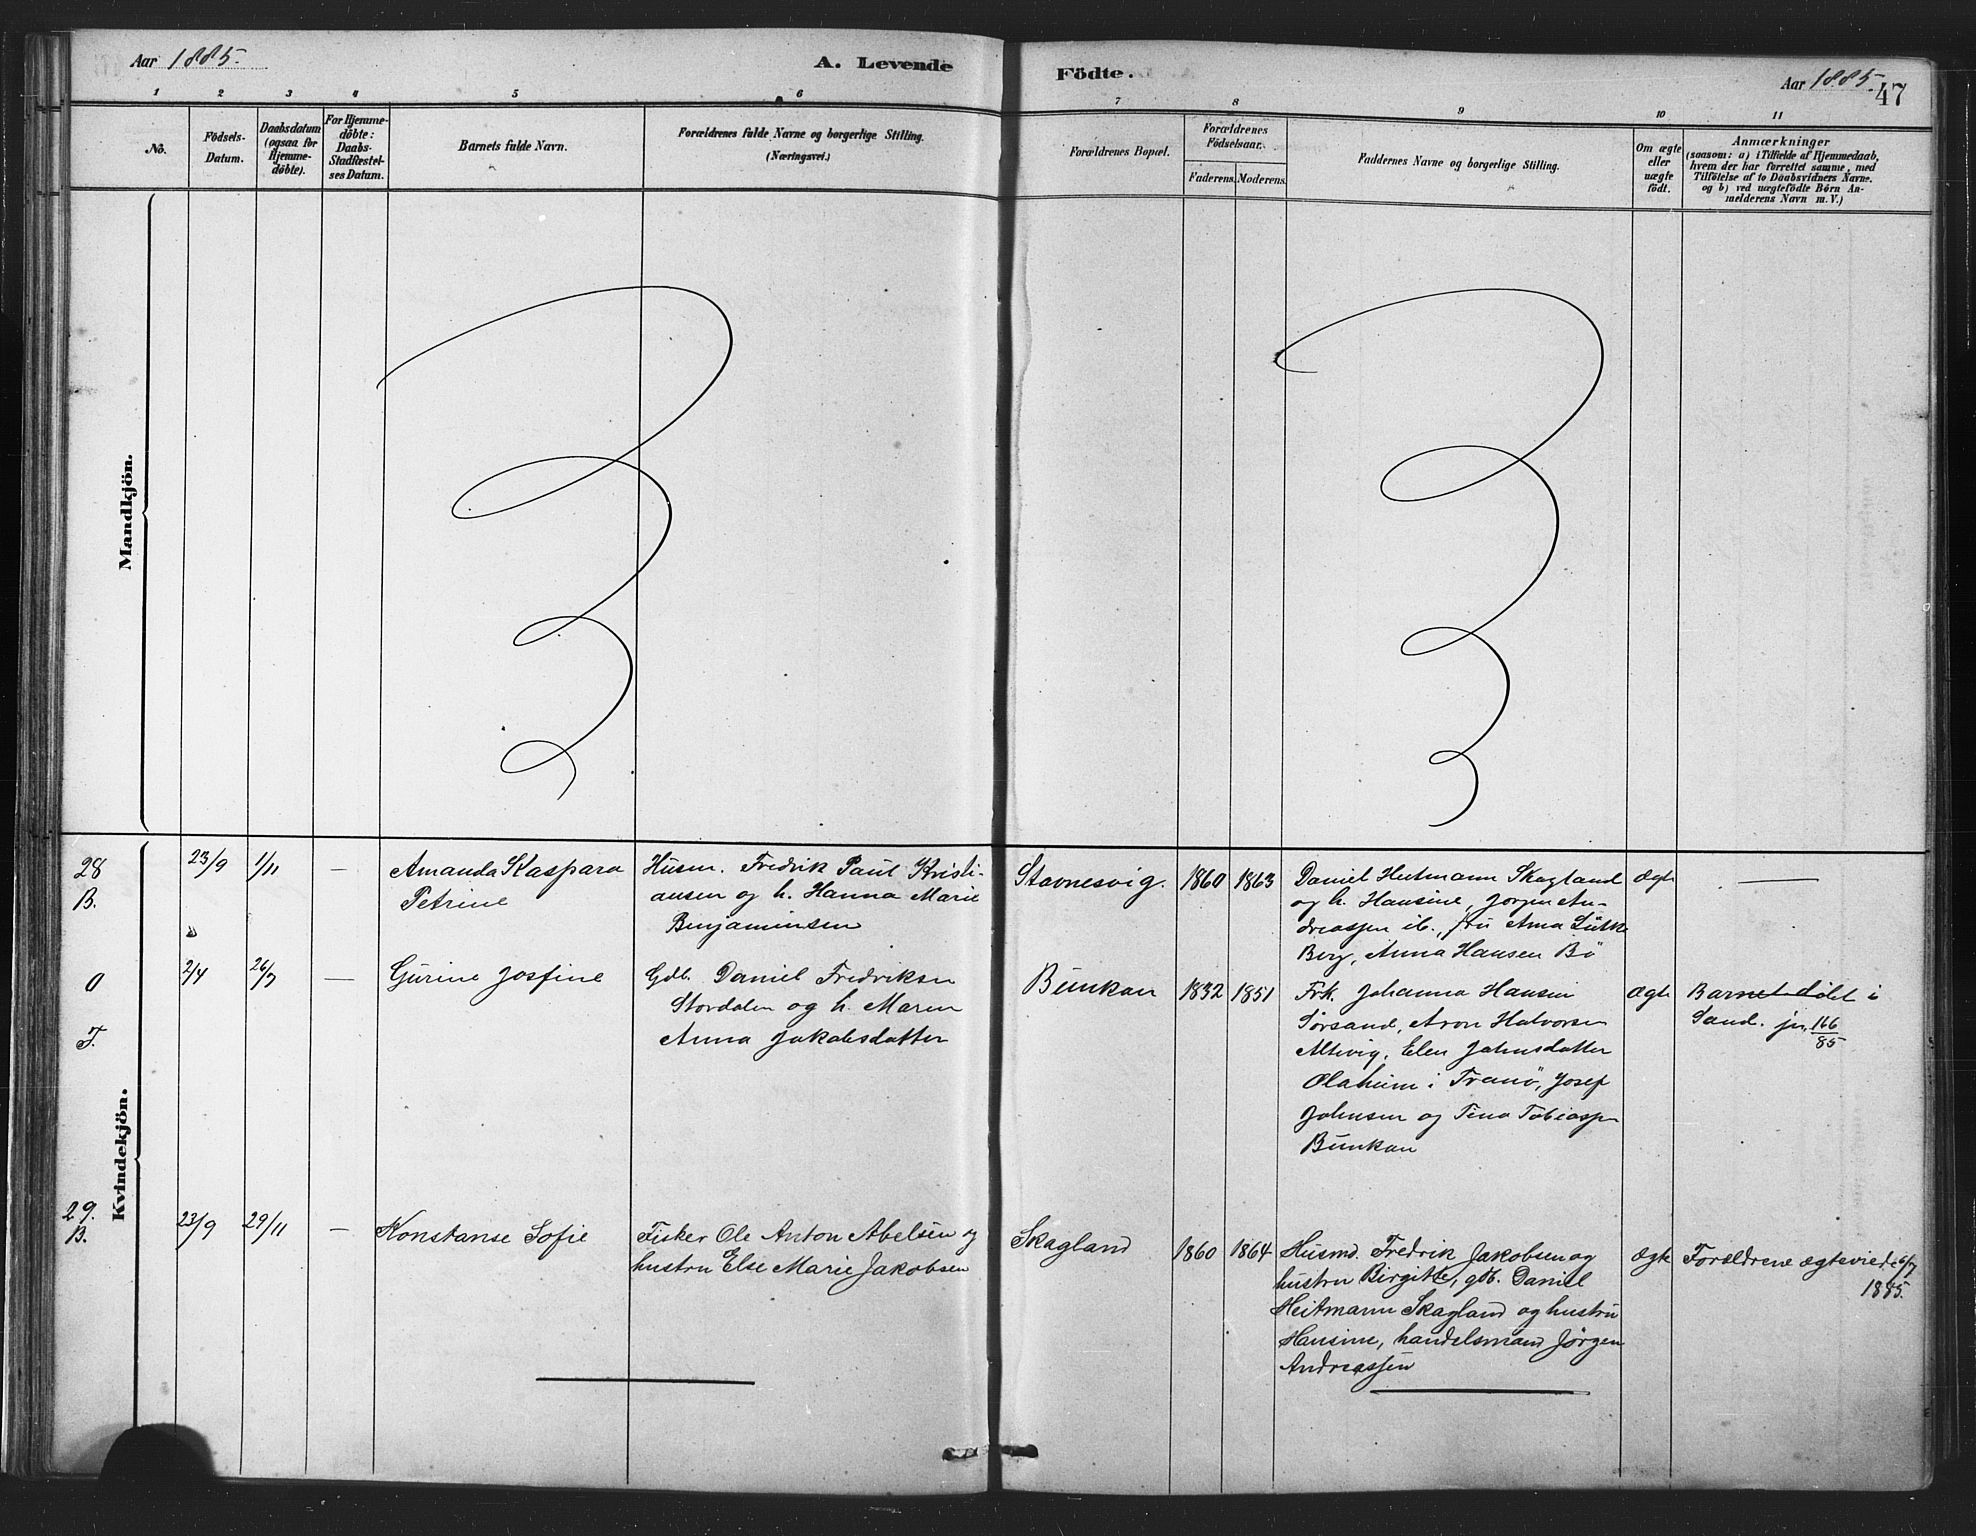 Aar 1885. A. Levende
Födte. Aar 1885. 47
1 2 3 4 5 6
7 8 9 10 11
No.
Födsels-
Datum.
Daabsdatum
(ogsaa for
Hjemme-
döbte).
For Hjemme-
döbte:
Daabs-
Stadfæstel-
ses Datum.
Barnets fulde Navn.
Forældrenes fulde Navne og borgerlige Stilling.
(Næringsvei.)
Forældrenes Bopæl.
Forældrenes
Födselsaar.
Faderens. Moderens.
Faddernes Navne og borgerlige Stilling.
Om ægte
eller
uægte
födt.
Anmærkninger
(saasom: a) i Tilfælde af Hjemmedaab,
hvem der har forrettet samme, med
Tilföielse af to Daabsvidners Navne.
og b) ved uægtefödte Börn An-
melderens Navn m. V.)
Mandkjön.
Kvindekjön.
28
B.
23/9 1/11 —
Amanda Kaspara
Petrine
Husm. Fredrik Paul Kristi-
ansen og h. Hanna Marie
Benjaminsen
Stavnesvig. 1860 1863
Daniel Heitmann Skagland
og h. Hansine, Jørgen An-
dreassen ib., fru Anna Lütke
Berg, Anna Hansen Bö
ægte —
O
F.
2/4 26/7 —
Gurine Josfine
Gdb. Daniel Fredriksen
Stordalen og h. Maren
Anna Jakobsdatter
Bunkan 1832 1851
Frk. Johanna Hansen
Sørsand, Aron Halvorsen
Altevig, Elen Johnsdatter
Olaheim i Tranö, Josef
Johnsen og Tina Tobiassen
Bunkan
ægte
Barnet döbt i
Sand. jn. 166/85
29.
B.
23/9 29/11 —
Konstanse Sofie
Fisker Ole Anton Abelsen og
hustru Else Marie Jakobsen
Skagland 1860 1864
Husmd. Fredrik Jakobsen og
hustru Birgitte, gdb. Daniel
Heitmann Skagland og hustru
Hansine, handelsmand Jörgen
Andreassen
ægte
Forældrene ægteviede 6/7
1885.